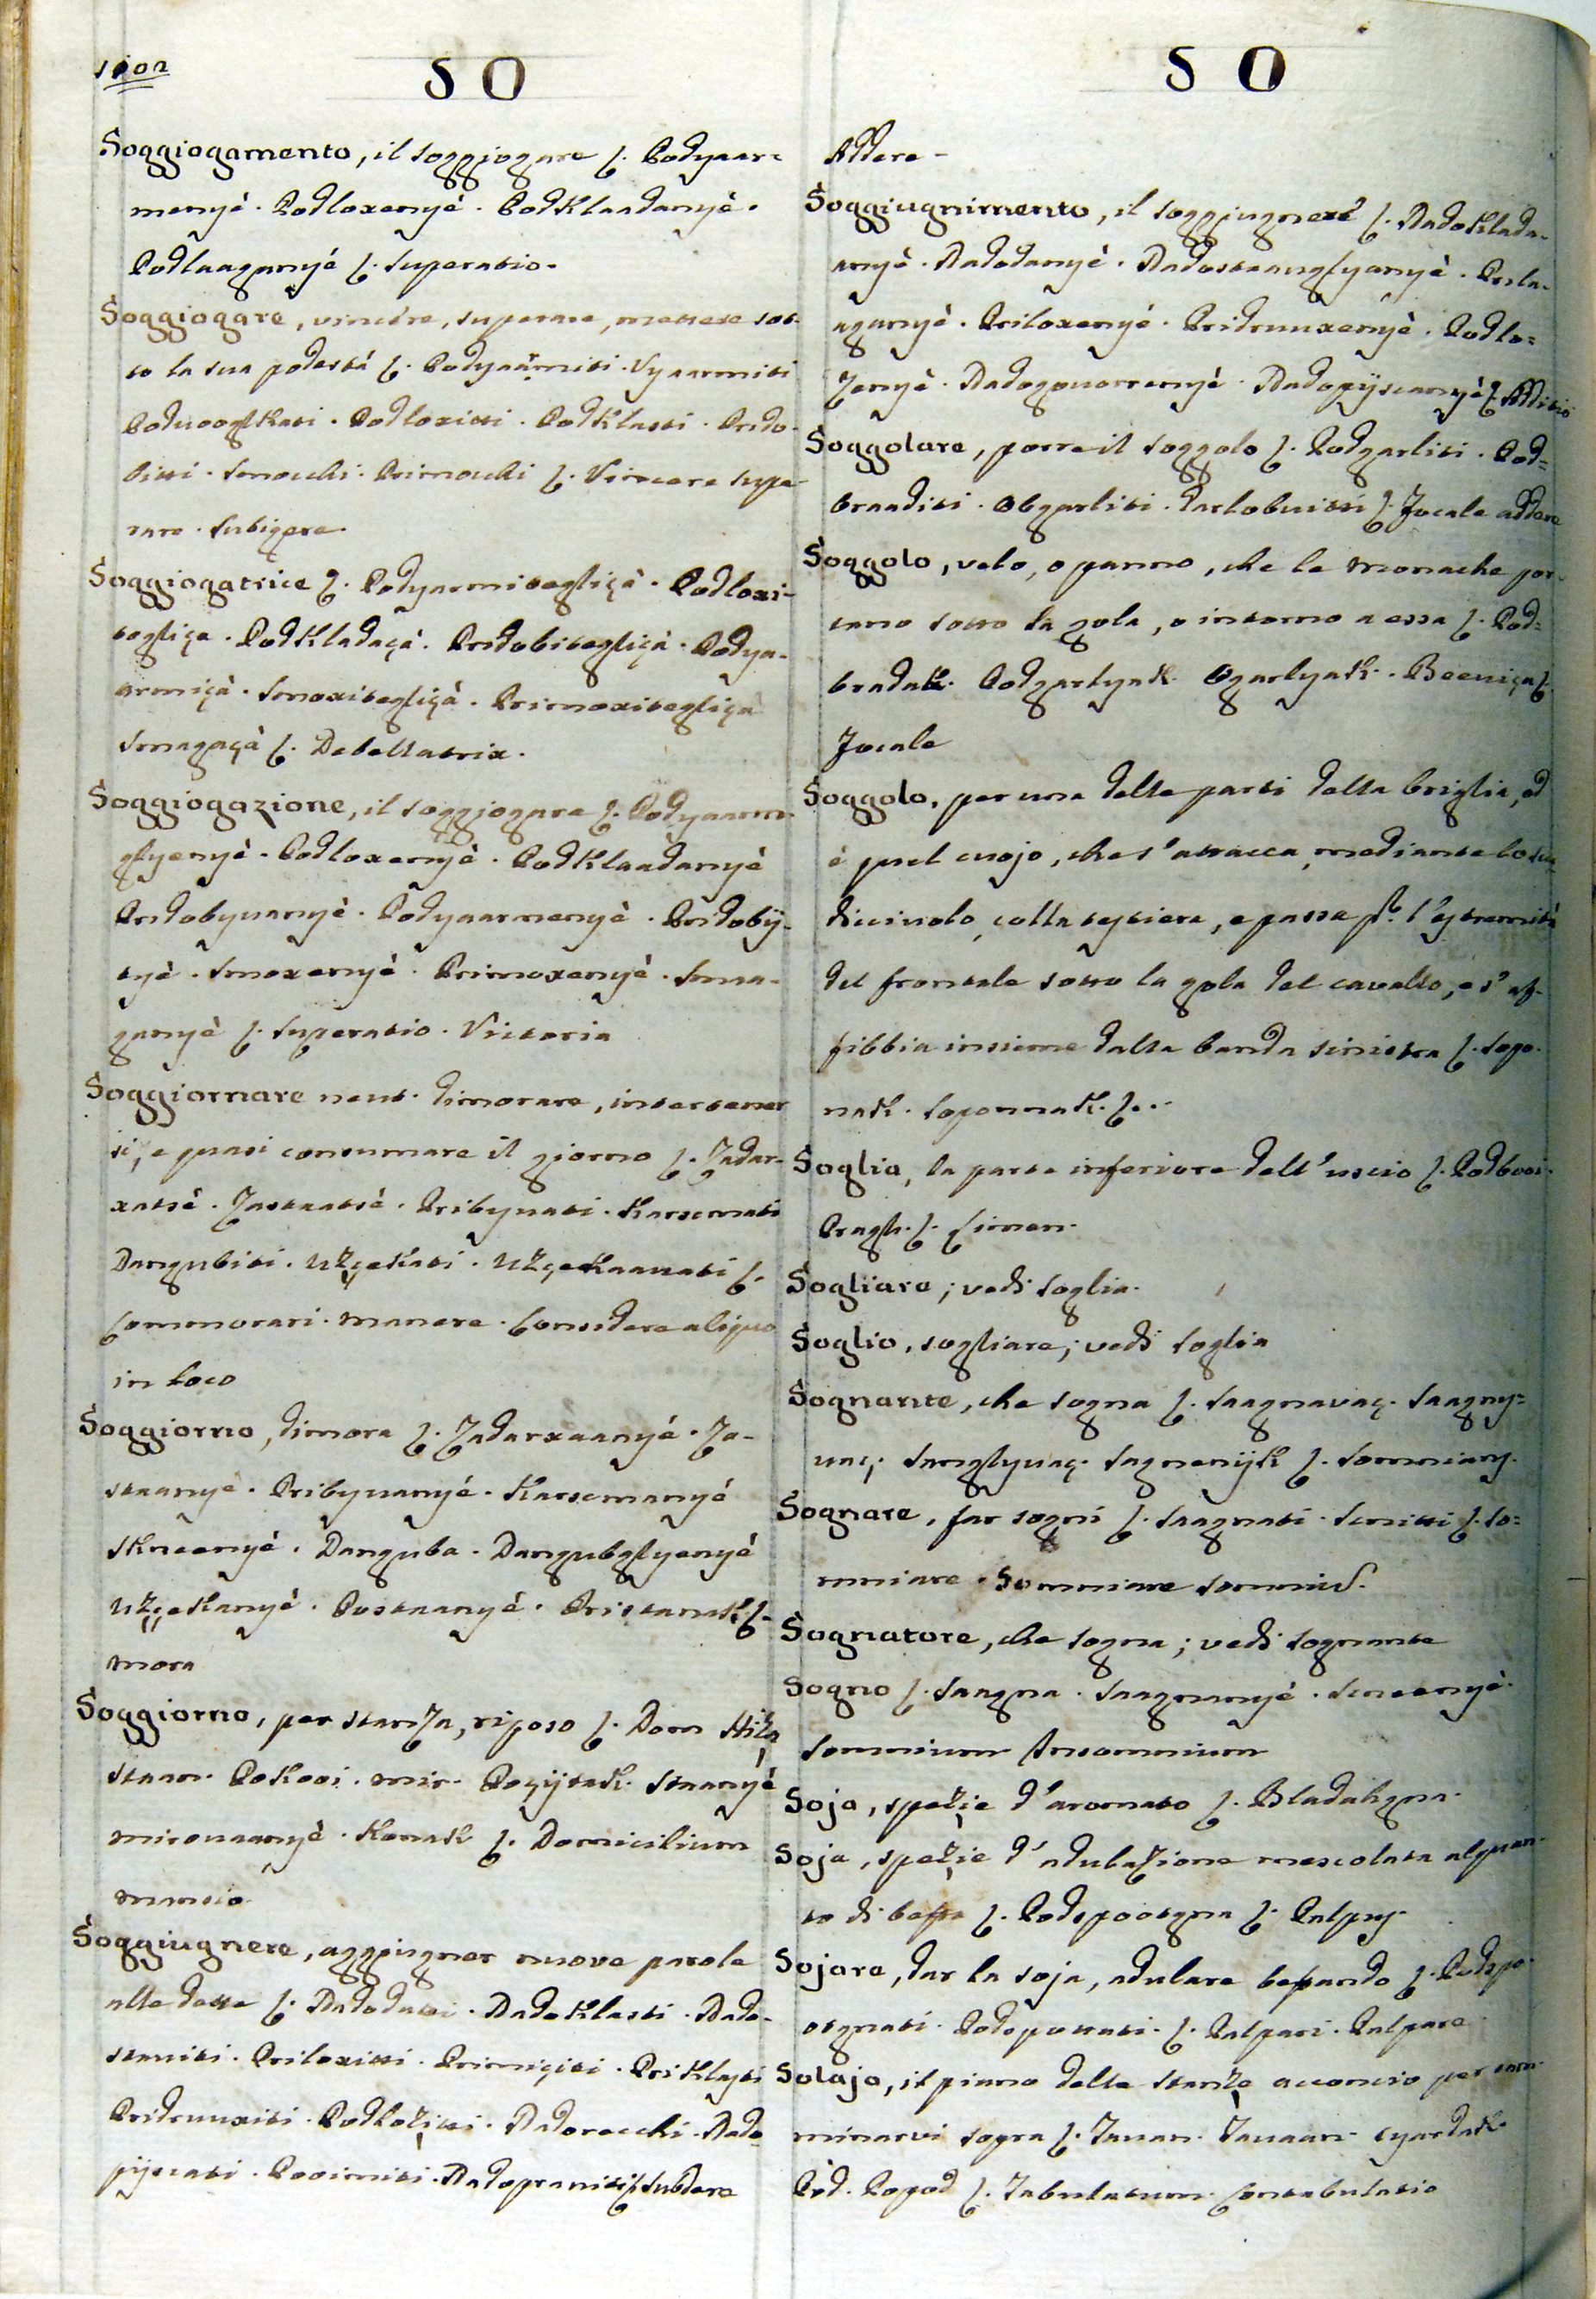 1002
SO
Soggiogamento, il soggiogare ſ. Podyaar=
menyè. Podloxenyè. Podklaadanyè.
Podlaaganyè ſ. Superatio.
Soggiogare, vincére, superare, mettere sot-
to la sua podestá ſ. Podyaarmiti. Vyaarmiti
Podvooglkati. Podloxitti. Podklasti. Prido-
bitti. Smocchi. Primocchi ſ. Vincere supe-
rare. Subigere.
Soggiogatrice ſ. Podyarmitegliçà. Podloxi-
tegliça. Podkladaçà. Pridobitegliçà. Podya-
armiçà. Smoxitegliçà. Primoxitegliça
Smagaçà ſ. Debellatrix.
Soggiogazione, il soggiogare ſ. Podyaarm-
glyenyè. Podloxenyè. Podklaadanyè
Pridobyvanyè. Podyaarmenyè. Pridobÿ-
tyè. Smoxenyè. Primoxenyè. Sma-
ganyè ſ. Superatio. Victoria
Soggiornare neut. dimorare, intertener
si, e quasi consumare il giorno ſ. Zadar-
xatsè. Zastaatsè. Pribyvati. Karscmati
Dangubiti. Užçekati. Užçekaavati ſ.
Commorari. manere. Considere aliquo
in loco
Soggiorno, dimora ſ. Zadarxaanyè. Za-
staanyè. Pribyvanyè. Karscmanyè
Skneenyè. Danguba. Dangubglyenyè
Užçekanyè. Postaanyè. Pristanak ſ.
mora
Soggiorno, per stanza, riposo ſ. Dom Hiža
staan. Pokooi. mir. Poçÿtak. Staanyè
mirovaanyè. Konak ſ. Domicilium
mansio.
Soggiugnere, aggiugner nuove parole
alle dette ſ. Nadodatti. Nadoklasti. Nado-
staviti. Priloxitti. Primiçiti. Priklasti
Pridruuxiti. Podložitti. Nadorecchi. Nado
pÿscati. Pooimiti. Nadopraviti ſ. Subdere
SO
Addere.
Soggiugnimento, il soggiugnere ſ. Nadoklada-
anyè. Nadodanyè. Nadostaavglyanyè. Prila-
aganyè. Priloxenyè. Pridruuxenyè. Podlo=
Zenyè. Nadogovorrenyè. Nadopÿscanyè ſ. Additio
Soggolare, porre il soggolo ſ. Podgarliti. Pod=
braaditi. Obgarliti. Garlobuitti ſ. Jocale addere
Soggolo, velo, o panno, che le monache por-
tano sotto la gola, o intorno a essa ſ. Pod=
bradak. Podgarlyak. Ogarlyak. Beeviça ſ.
Jocale
Soggolo, per una delle parti della briglia, ed
è quel cuojo, che s'attacca, mediante lo scu
dicciuolo, colla testiera, e passa pr. l'estremitá
del frontale sotto la gola del cavallo, e s'af-
fibbia insieme dalla banda sinistra ſ. Sopo-
nak. Soponnak. ſ...
Soglia, la parte inferiore dell'uscio ſ. Podbooi.
Pragh. ſ. Limen.
Sogliare; vedi soglia.
Soglio, sogliare; vedi soglia
Sognante, che sogna ſ. Saagnavaç. Saagny=
vaç. Sanglyvaç. Sagnenÿk ſ. Somnians.
Sognare, far sogni ſ. Saagnati. Scnitti ſ. So=
mniare. Somniare somniuſ.
Sognatore, che sogna; vedi sognante
Sogno ſ. Saagna. Saagnanyè. Scneenyè.
Somnium Insomnium
Soja, spežie d'aromato ſ. Bladahgna.
Soja, spežie d'adulazione mescolata alquan-
to di beffe ſ. Podspootgna ſ. Palpus.
Sojare, dar la soja, adulare beffando ſ. Podspo-
otgnati. Podsputtati. ſ. Palpari. Palpare.
Solajo, il piano delle stanze acconcio per cam-
minarvi sopra ſ. Tavan. Tavaan. cyardak.
Pòd. Popod ſ. Tabulatum. Contabulatio